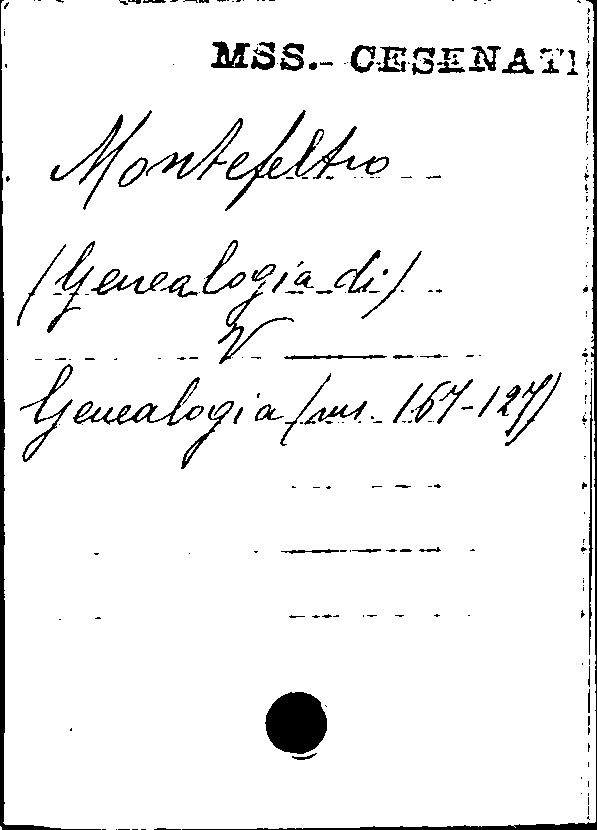 MSS.- CESENATI
Montefeltro
(Genealogia di)
V
Genealogia (ms. 167-127)